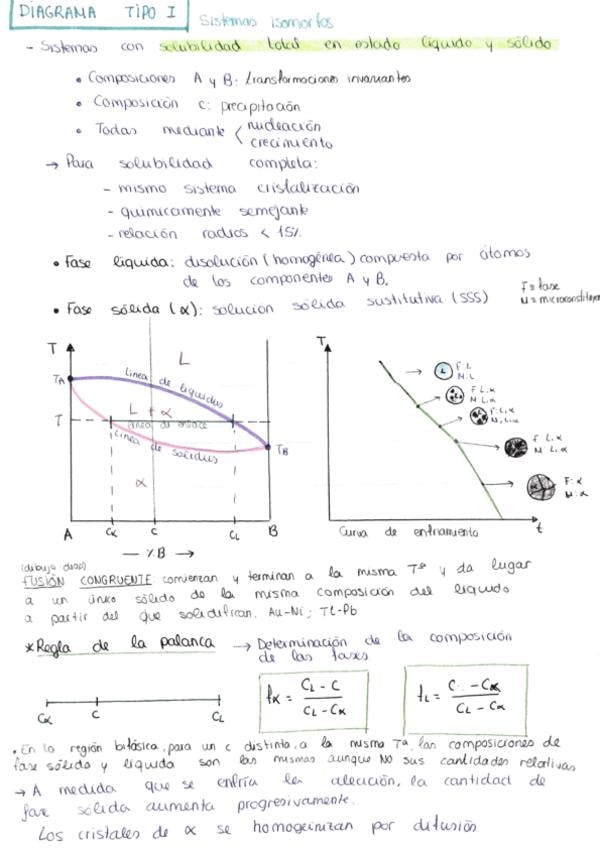 DIAGRAMA TIPO I Sistemas isomorfos
- Sistemas con solubilidad total en estado líquido y sólido
• Composiciones A y B: transformaciones invariantes
• Composición C: precipitación
• Todas mediante < nucleación
crecimiento
→ Para solubilidad completa:
- mismo sistema cristalización
- químicamente semejante
- relación radios < 15%
• Fase líquida: disolución (homogénea) compuesta por átomos
de los componentes A y B.
• Fase sólida (α): solución sólida sustitutiva (SSS)
F = fase
M = microconstituyen
T
L
TA
linea de liquidus
L + α
T
linea de enlace
linea de solidus
TB
α
A Cα C CL B
— %B →
T
L F: L
M: L
F: L, α
M: L, α
F: L, α
M: L, α
F: L, α
M: L, α
α F: α
M: α
Curva de enfriamiento t
(dibujo dcso)
FUSIÓN CONGRUENTE: comienzan y terminan a la misma Tª y da lugar
a un único sólido de la misma composición del líquido
a partir del que solidifican. Au-Ni; TL-Pb
*Regla de la palanca → Determinación de la composición
de las fases
Cα C CL
fα = CL - C / CL - Cα
fL = C - Cα / CL - Cα
• En la región bifásica, para un c distinto, a la misma Tª, las composiciones de
fase sólida y líquida son las mismas aunque NO sus cantidades relativas
→ A medida que se enfría la aleación, la cantidad de
fase sólida aumenta progresivamente.
Los cristales de α se homogeinizan por difusión